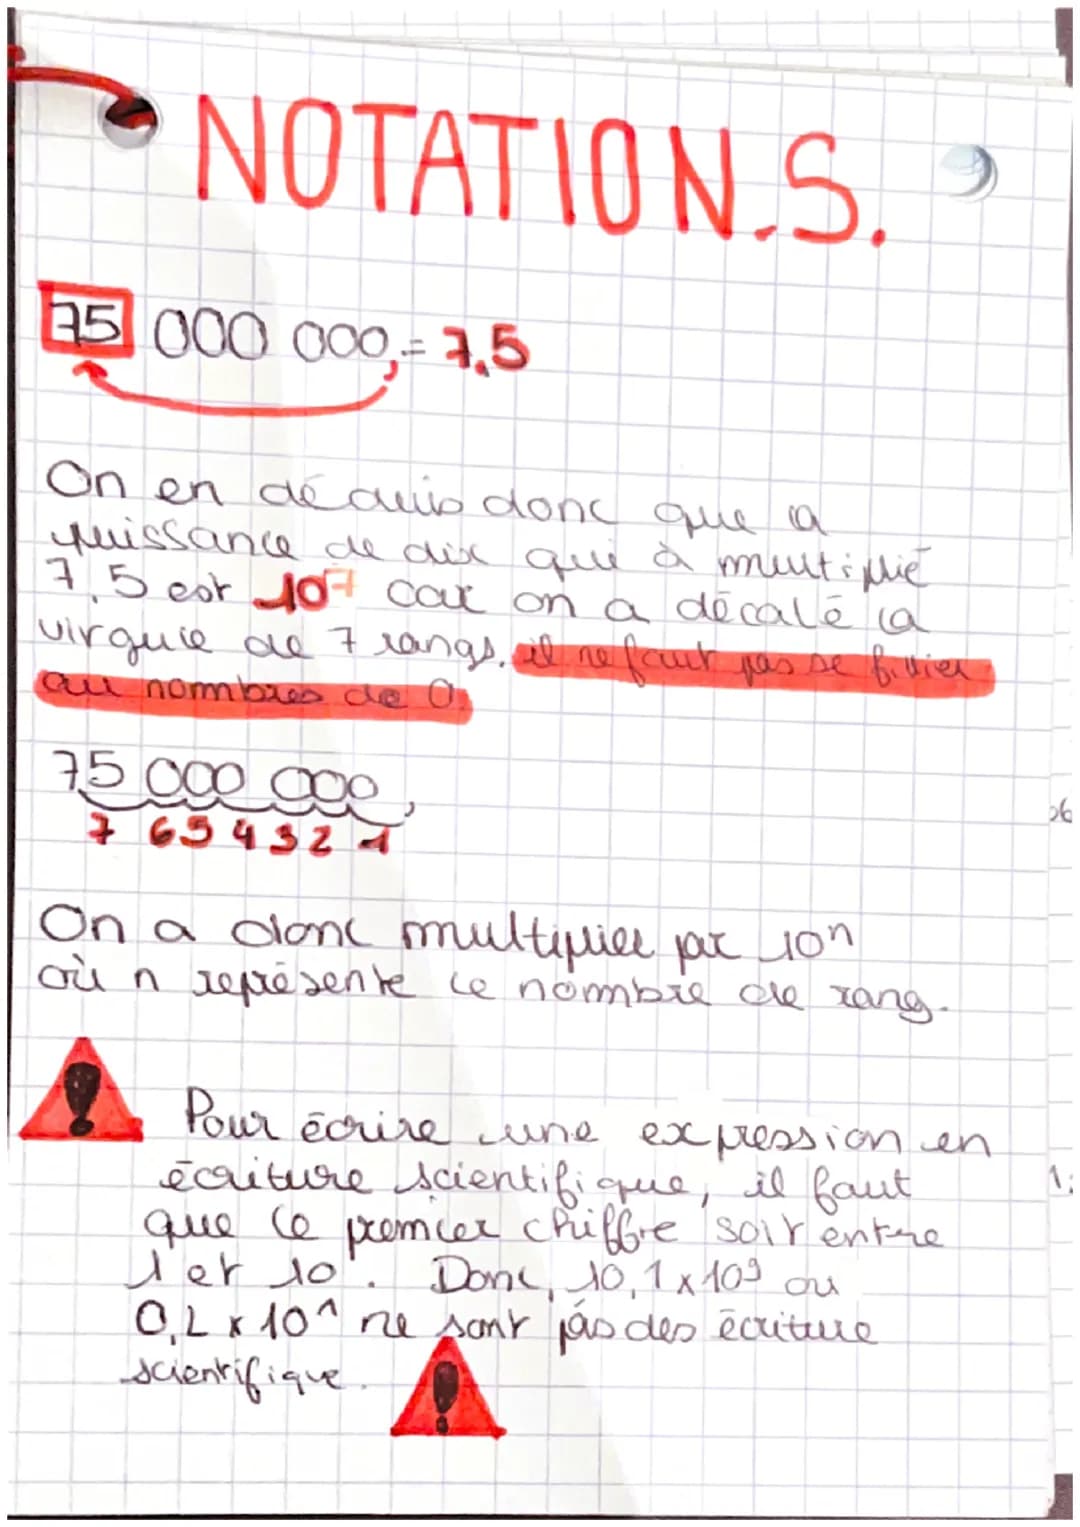 NOTATION.S.
75 000 000, = 7,5
On en déduis donc que la
puissance de dix qui à multiplié
7,5 est 10⁷ car on a décalé la
virgule de 7 rangs. il ne faut pas se fivier
au nombres de 0.
75 000 000,
7 6 5 4 3 2 1
On a donc multiplier par 10ⁿ
où n représente le nombre de rang.
Pour écrire une expression en
écriture scientifique, il faut
que le premier chiffre soit entre
1 et 10. Donc, 10,1 x 10⁹ ou
0,2 x 10¹ ne sont pas des écriture
scientifique.